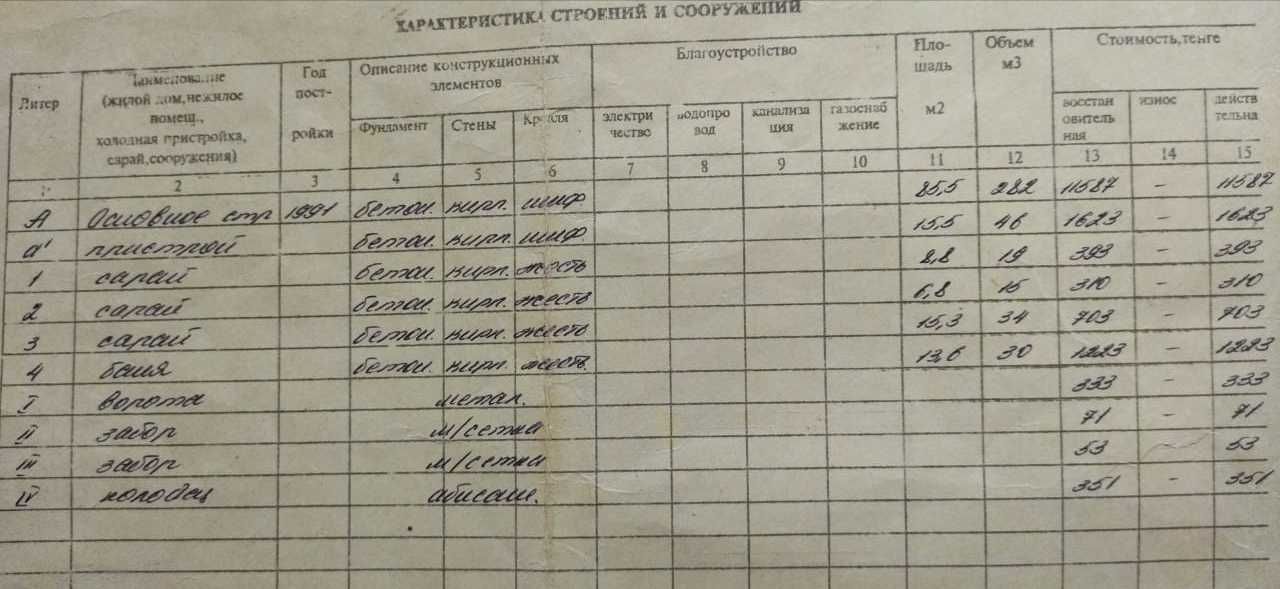 ХАРАКТЕРИСТИКА СТРОЕНИЙ И СООРУЖЕНИЙ
Литер Наименование (жилой дом,нежилое помещ., холодная пристройка, сарай,сооружения) Год пост-ройки Описание конструкционных элементов Благоустройство Пло-щадь м2 Объем м3 Стоимость,тенге
Фундамент Стены Кровля электри чество водопро вод канализа ция газоснаб жение восстан овитель ная износ действ тельна
1 2 3 4 5 6 7 8 9 10 11 12 13 14 15
А Основное стр 1991 бетон. кирп. шиф 85,5 282 11587 – 11587
а' пристрой бетон. кирп. шиф. 15,5 46 1623 – 1623
1 сарай бетон. кирп. жесть 8,8 19 393 – 393
2 сарай бетон. кирп. жесть 6,8 15 310 – 310
3 сарай бетон. кирп. жесть 15,3 34 703 – 703
4 баня бетон. кирп. жесть. 13,6 30 1223 – 1223
I ворота метал. 333 – 333
II забор м/сетка 71 – 71
III забор м/сетка 53 – 53
IV колодец 351 – 351